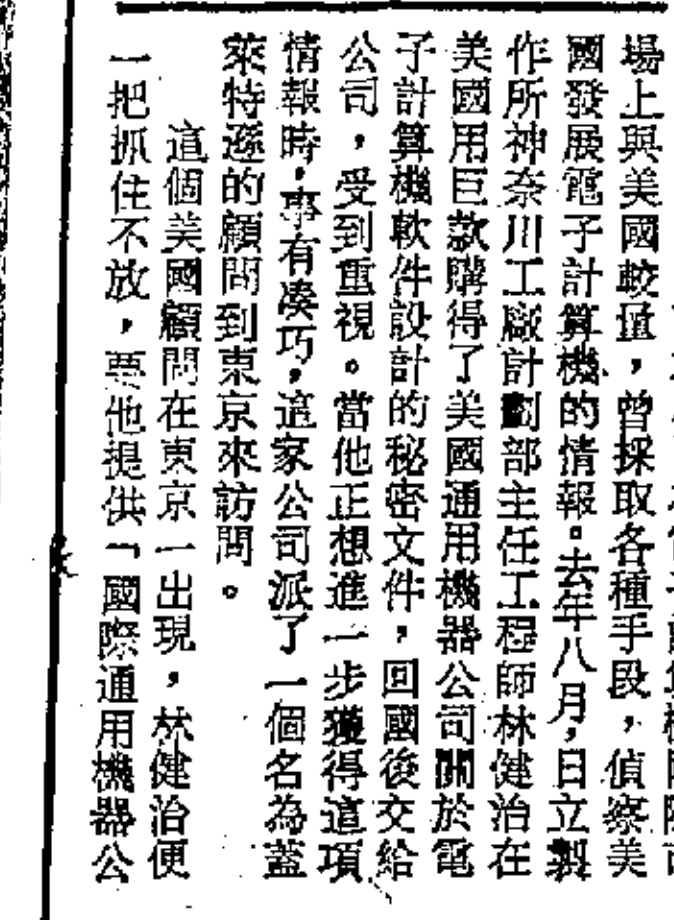 場上與美國較量，曾採取各種手段，偵察美
國發展電子計算機的情報。去年八月，日立製
作所神奈川工廠計劃部主任工程師林健治在
美國用巨款購得了美國通用機器公司關於電
子計算機軟件設計的秘密文件，回國後交給
公司，受到重視。當他正想進一步獲得這項
情報時，事有凑巧，這家公司派了一個名為蓋
萊特遜的顧問到東京來訪問。
這個美國顧問在東京一出現，林健治便
一把抓住不放，要他提供「國際通用機器公